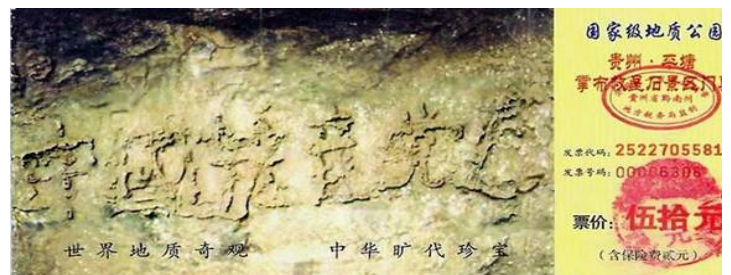 中國共産党亡
世界地质奇观 中华旷代珍宝
国家级地质公园
贵州·平塘
掌布救星石景区门
贵州省黔南州
地方税务局监制
发票代码: 2522705581
发票号码: 00006306
票价: 伍拾元
(含保险费贰元)